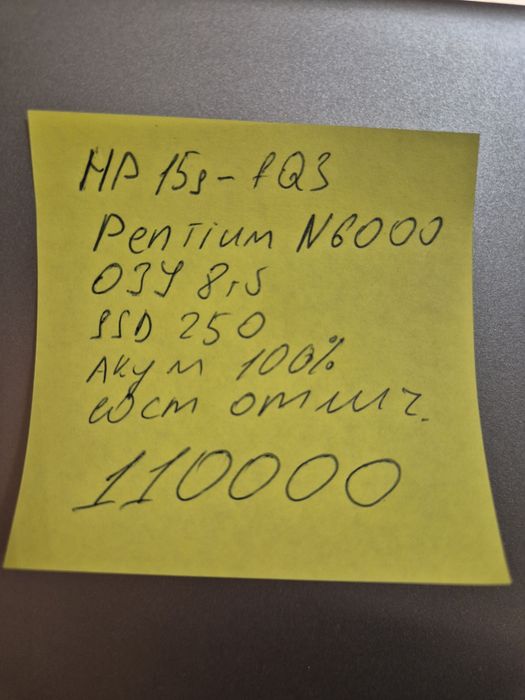 HP 15s-fQ3
Pentium N6000
ОЗУ 8гб
SSD 250
Акум 100%
сост отлич.
110000